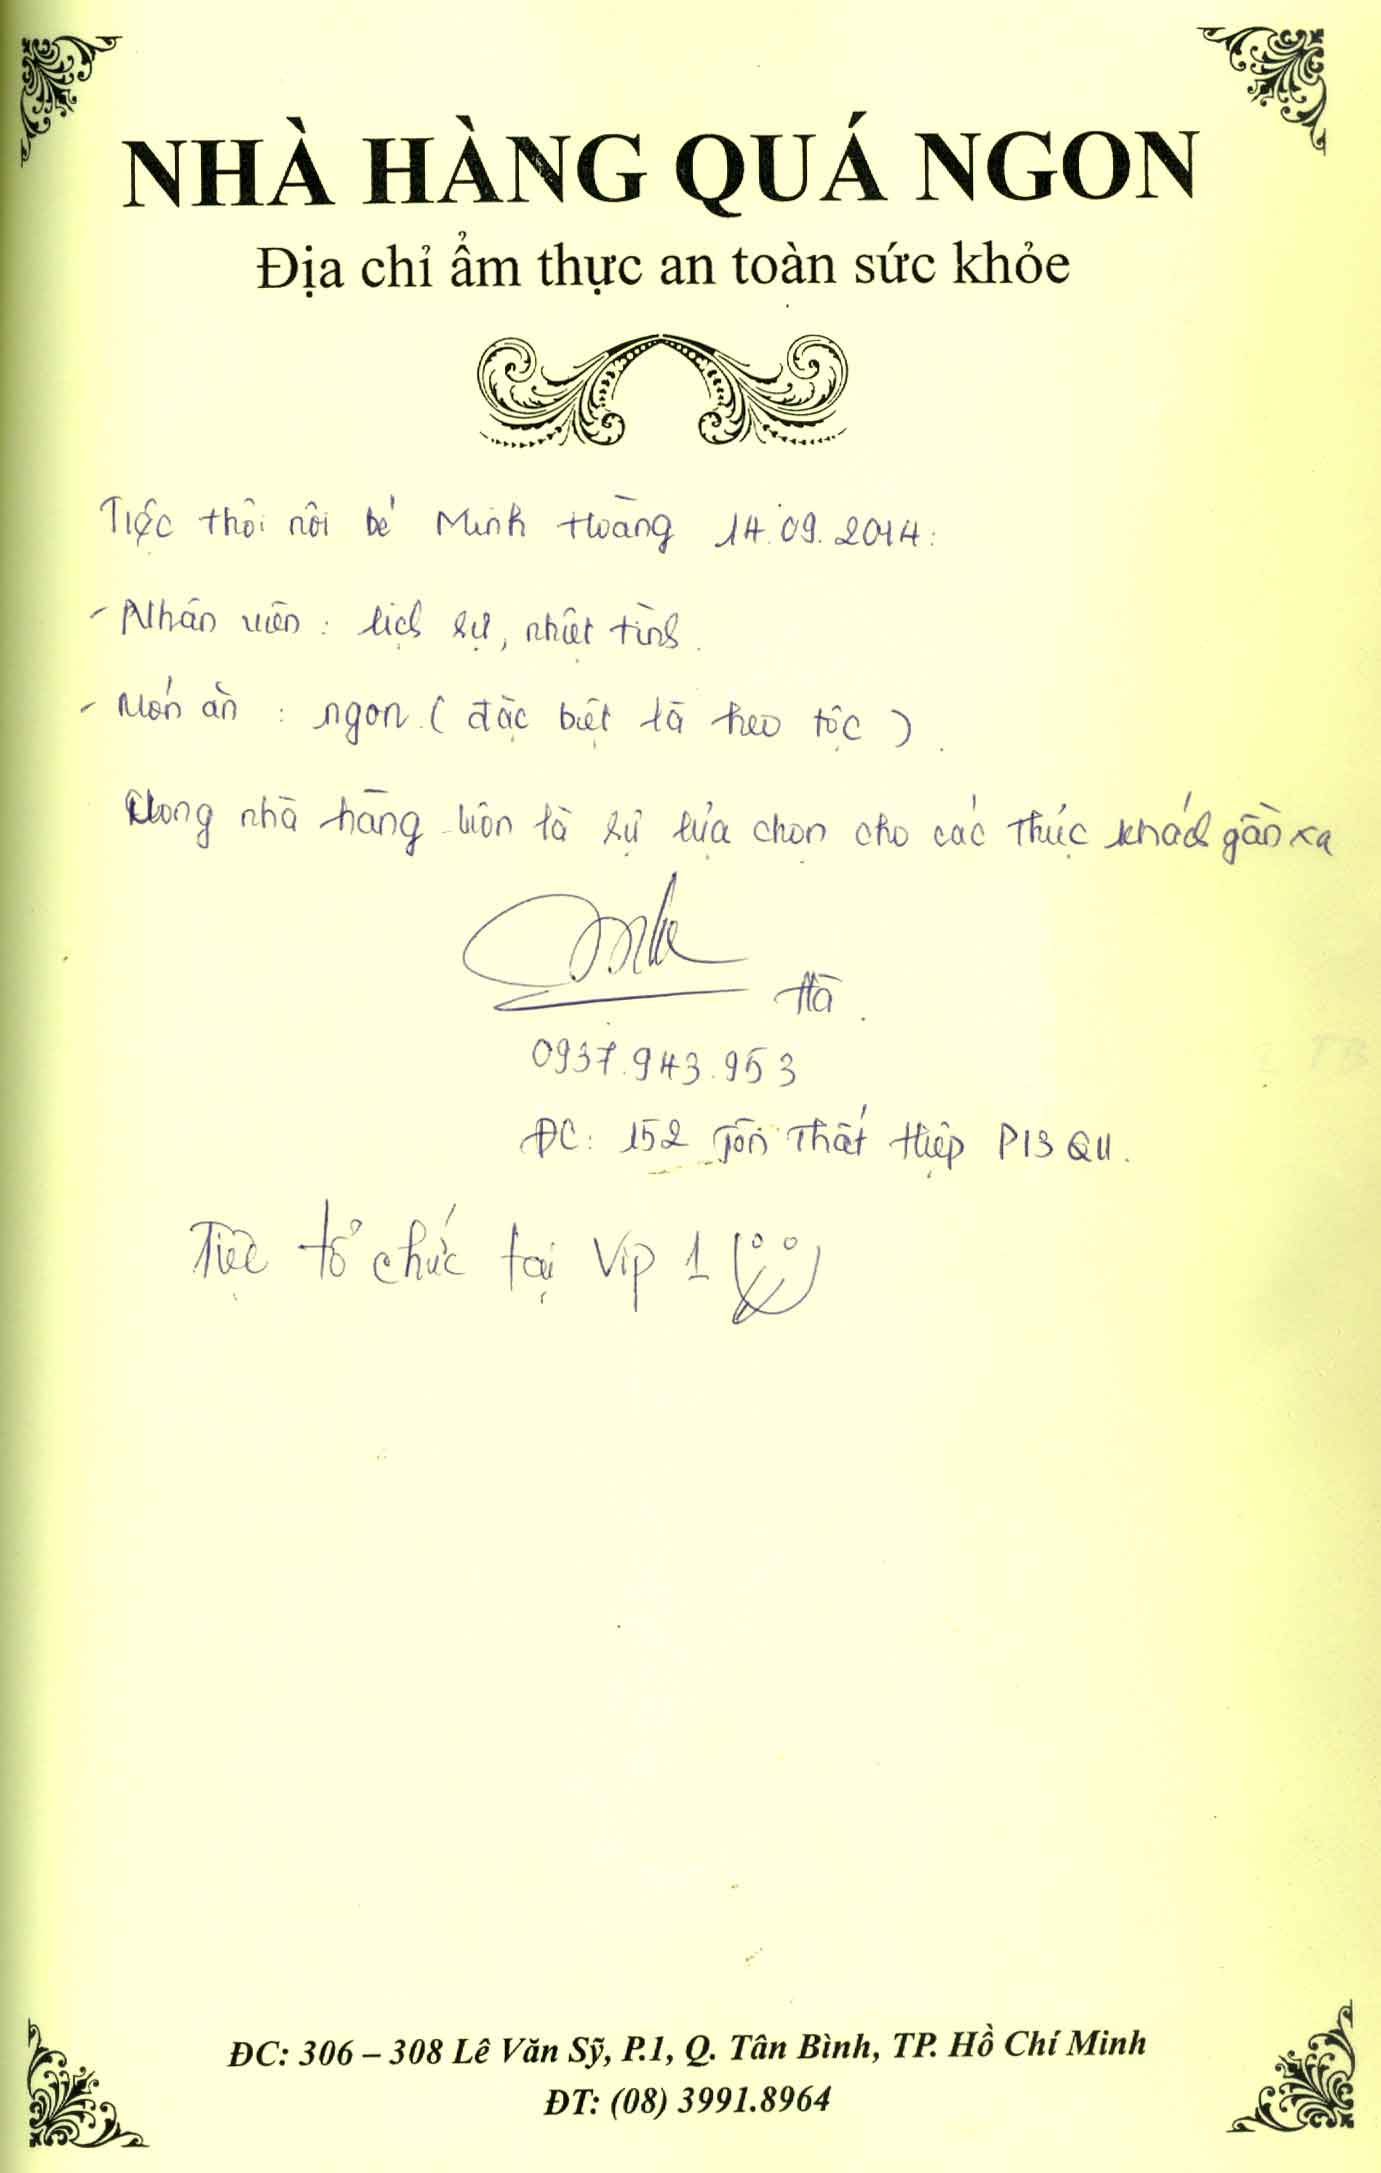 NHÀ HÀNG QUÁ NGON
Địa chỉ ẩm thực an toàn sức khỏe
Tiệc thôi nôi bé Minh Hoàng 14.09.2014:
- Nhân viên: lịch sự, nhiệt tình.
- Món ăn : ngon (đặc biệt là heo tộc).
Mong nhà hàng luôn là sự lựa chọn cho các thực khách gần xa
Hà.
0937.943.953
ĐC: 152 Tôn Thất Hiệp P13 Q11.
Tiệc tổ chức tại Vip 1
ĐC: 306 – 308 Lê Văn Sỹ, P.1, Q. Tân Bình, TP. Hồ Chí Minh
ĐT: (08) 3991.8964